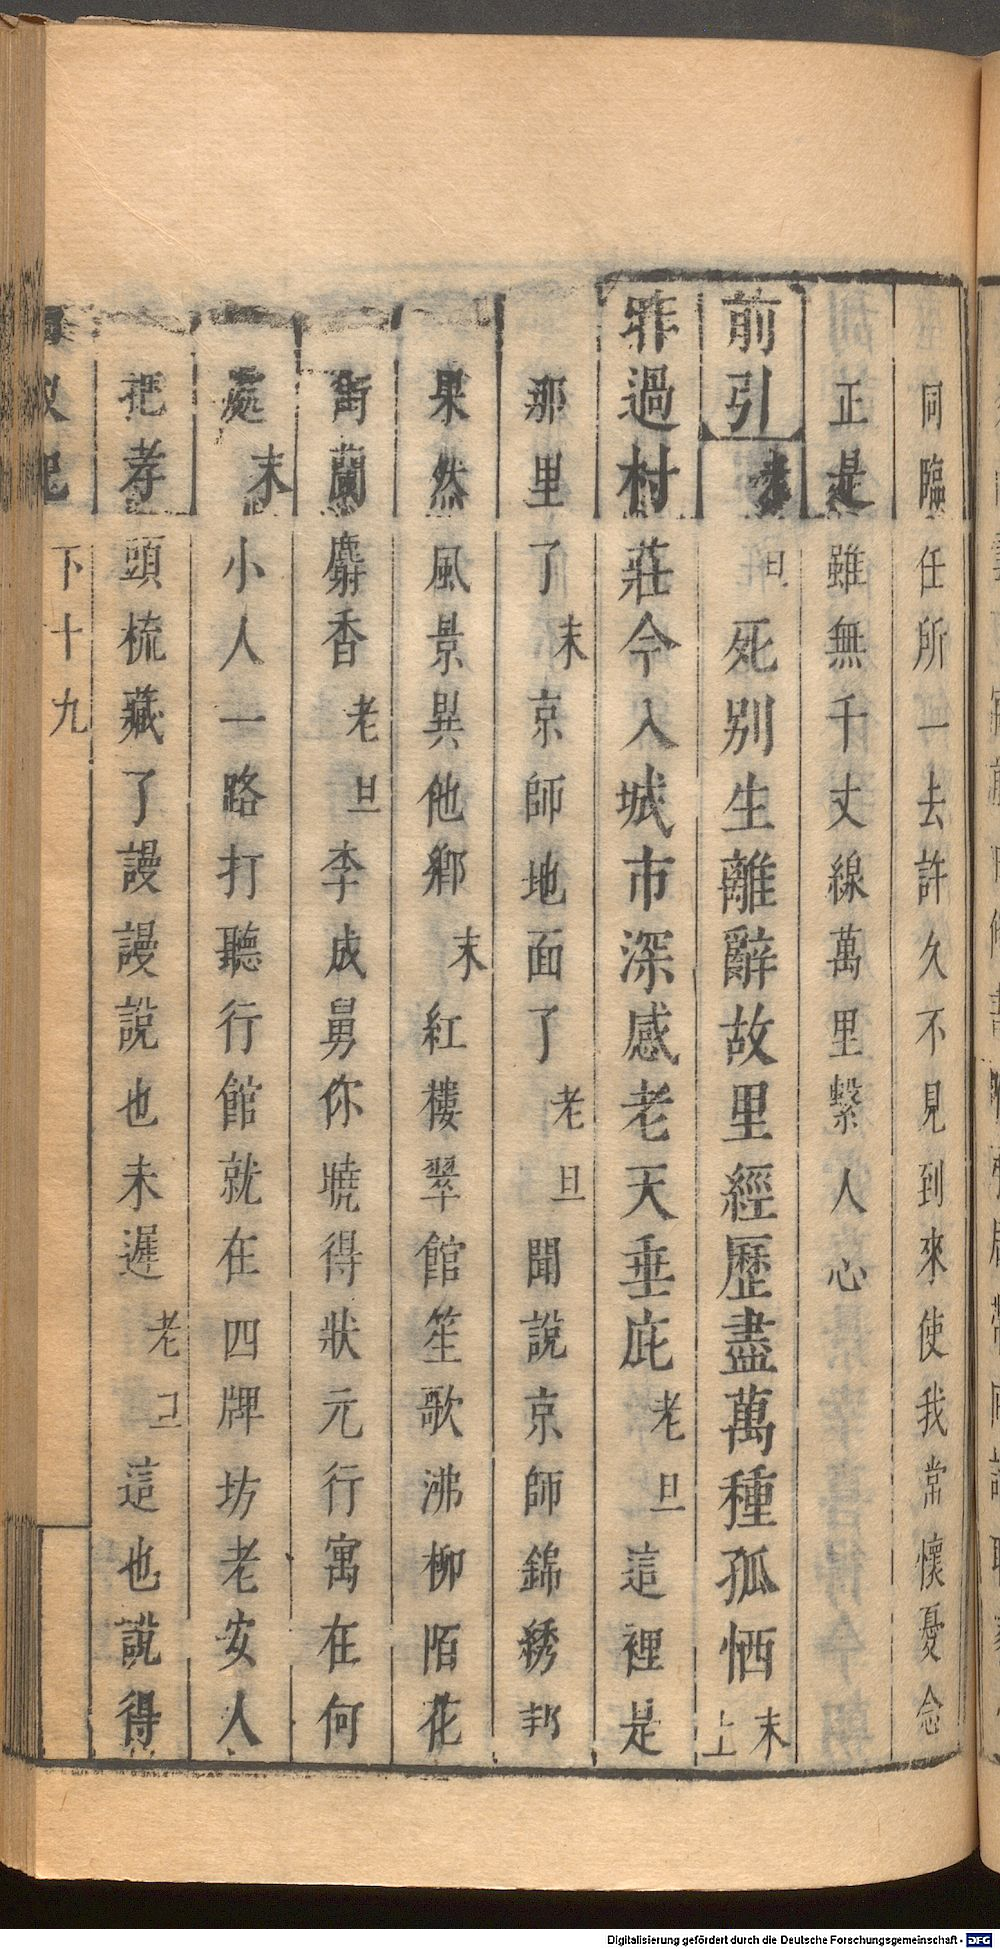 同臨任所一去許久不見到來使我常懷憂念
正是雖無千丈線萬里繫人心
前引 老旦死別生離辭故里經歷盡萬種孤恓末上
昨過村莊今入城市深感老天垂庇老旦這裡是
那里了末京師地面了老旦聞說京師錦绣邦
果然風景異他鄉末紅樓翠館笙歌沸柳陌花
街蘭麝香老旦李成舅你曉得狀元行寓在何
處末小人一路打聽行館就在四牌坊老安人
把孝頭梳藏了謾謾說也未遲老旦這也說得
下十九
Digitalisierung gefördert durch die Deutsche Forschungsgemeinschaft - DFG